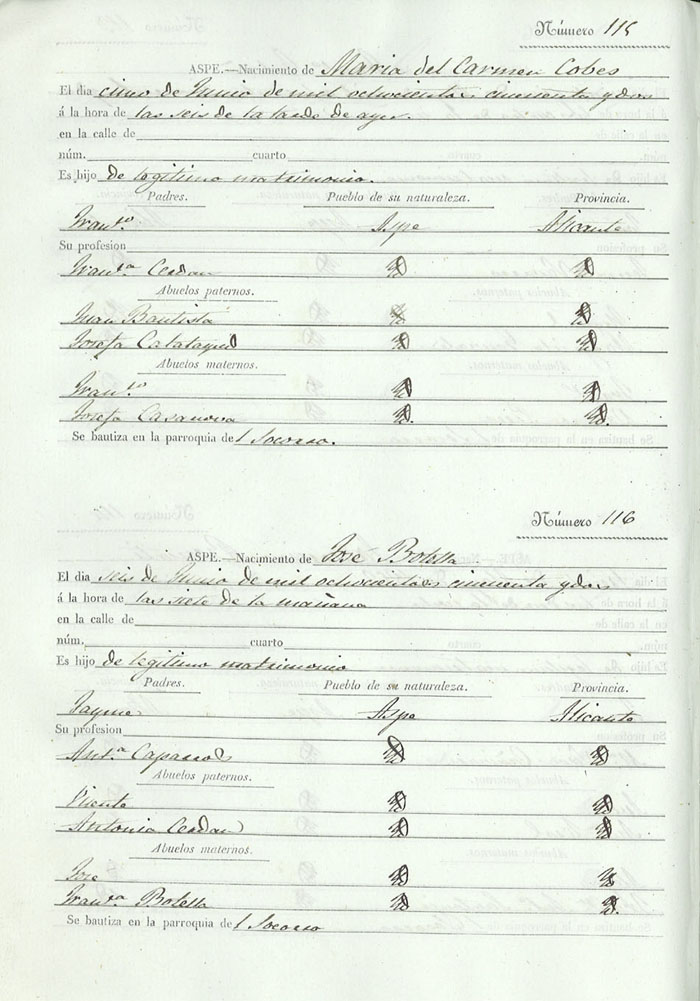 Número 115
ASPE.—Nacimiento de Maria del Carmen Cobes
El dia cinco de Junio de mil ochocientos cincuenta y dos
á la hora de las seis de la tarde de ayer.
en la calle de
núm. cuarto
Es hijo de legitimo matrimonio.
Padres. Pueblo de su naturaleza. Provincia.
Fran.co Aspe Alicante
Su profesion
Fran.ca Cerdan
Abuelos paternos.
Juan Bautista
Josefa Calatayud
Abuelos maternos.
Fran.co
Josefa Casanova
Se bautiza en la parroquia del Socorro.
Número 116
ASPE.—Nacimiento de Jose Botella
El dia seis de Junio de mil ochocientos cincuenta y dos
á la hora de las siete de la mañana
en la calle de
núm. cuarto
Es hijo de legitimo matrimonio
Padres. Pueblo de su naturaleza. Provincia.
Jayme Aspe Alicante
Su profesion
Ant.a Caparros
Abuelos paternos.
Vicente
Antonia Cerdan
Abuelos maternos.
Jose
Fran.ca Botella
Se bautiza en la parroquia del Socorro